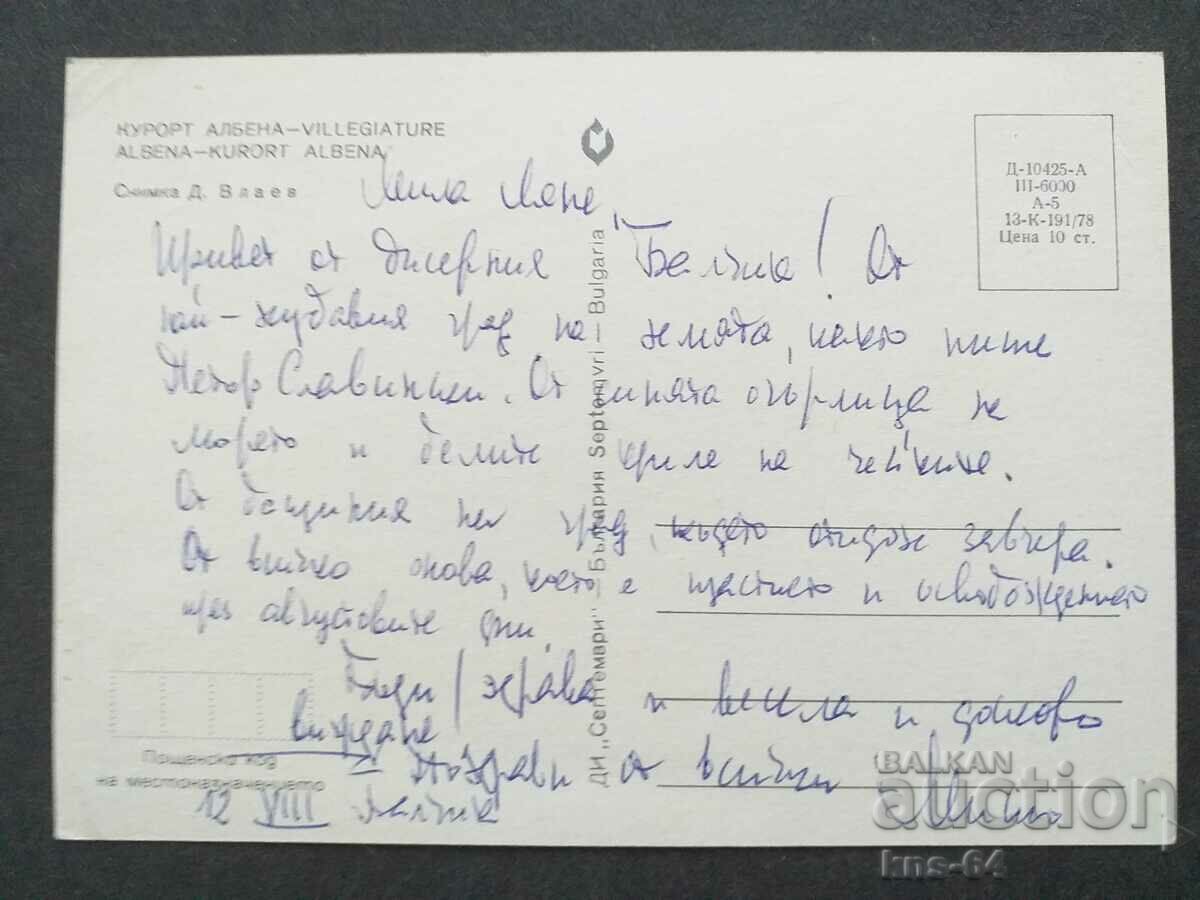 КУРОРТ АЛБЕНА—VILLEGIATURE
ALBENA—KURORT ALBENA
Снимка Д. Влаев
Д-10425-А
III-6000
А-5
13-К-191/78
Цена 10 ст.
Мила Ляне,
Привет от Балчик! От
най-хубавия град на земята, както пише
Петър Славински. От синята огърлица на
морето и белите криле на чайките.
От бащиния ми град, където отидох завчера.
От всичко онова, което е щастието и освобождението
през августовите дни.
Бъди здрава и весела и до ново
виждане!
Поздрави от всички
12 VIII Балчик
Пощенски код
на местоназначението
ДИ „Септември", България Septemvri — Bulgaria
BALKAN
auction
kns-64